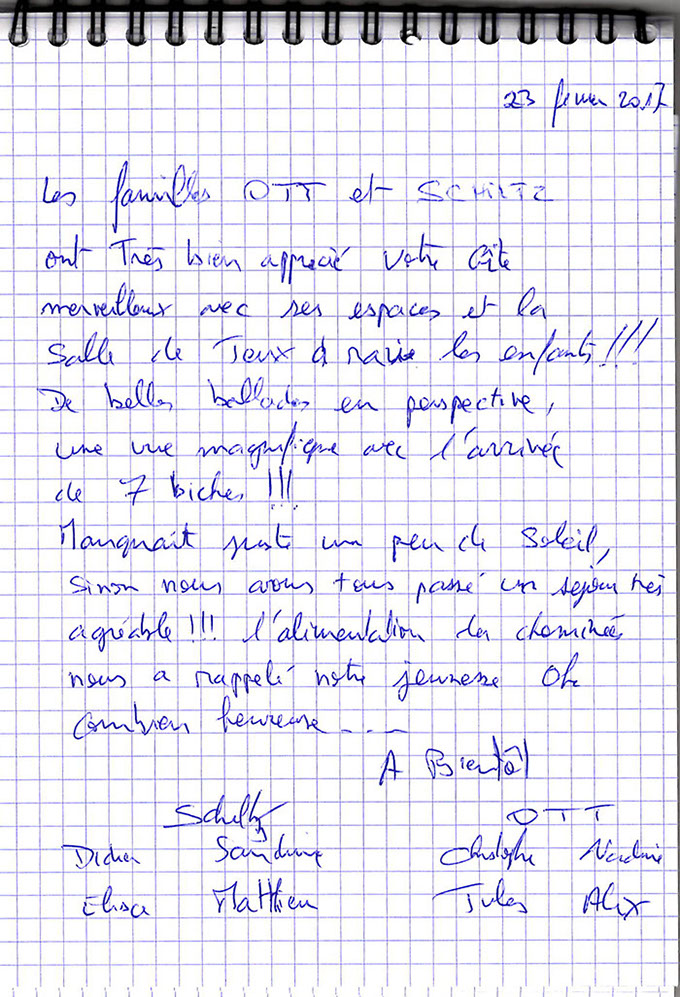 23 février 2017
Les familles OTT et SCHILTZ
ont Très bien apprécié votre Gîte
merveilleux avec ses espaces et la
Salle de Jeux à ravie les enfants !!!
De belles ballades en perspective,
une vue magnifique avec l'arrivée
de 7 biches !!!
Manquait juste un peu de Soleil,
sinon nous avons tous passé un séjour très
agréable !!! l'alimentation des cheminées
nous a rappelé notre jeunesse Oh
combien heureuse ....
A Bientôt
Schiltz OTT
Didier Sandrine Christophe Nadine
Elisa Matthieu Jules Alix